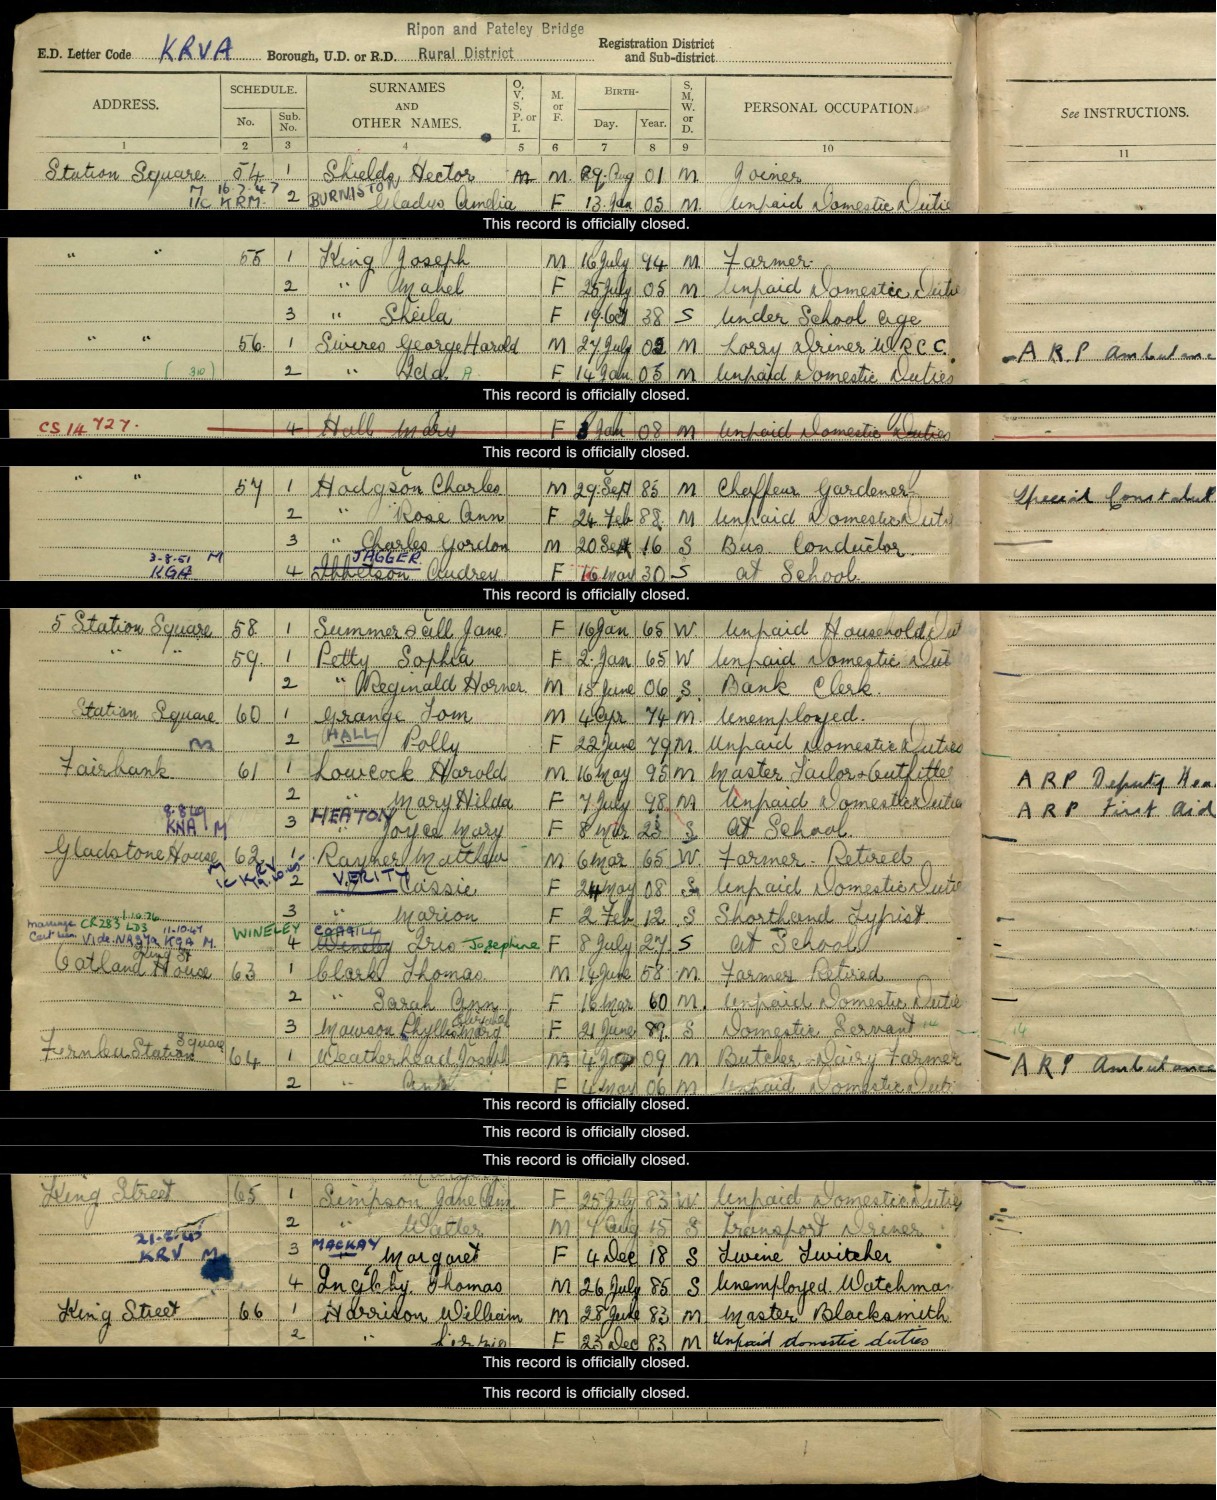 Ripon and Pateley Bridge
E.D. Letter Code KRVA Borough, U.D. or R.D. Rural District Registration District and Sub-district
ADDRESS. SCHEDULE. No. Sub. No. SURNAMES AND OTHER NAMES. O, V, S, P, or I. M. or F. BIRTH- Day. Year. S, M, W, or D. PERSONAL OCCUPATION. See INSTRUCTIONS.
1 2 3 4 5 6 7 8 9 10 11
Station Square 54 1 Shields Hector M 29 Aug 01 M Joiner
M 16.7.47 KRM 2 BURNISTON Gladys Amelia F 13 Jan 05 M Unpaid Domestic Dutie
This record is officially closed.
" " 55 1 King Joseph M 16 July 94 M Farmer
2 " Mabel F 25 July 05 M Unpaid Domestic Dutie
3 " Sheila F 19 Oct 38 S Under School Age
" " 56 1 Swires George Harold M 27 July 02 M Lorry Driver W.R.C.C. A.R.P Ambulance
(310) 2 " Hilda A F 14 Jan 05 M Unpaid Domestic Duties
This record is officially closed.
CS 14 727. 4 Hall Mary F Jan 08 M Unpaid Domestic Duties
This record is officially closed.
" " 57 1 Hodgson Charles M 29 Sept 85 M Chaffeur Gardener Special Constabul
2 " Rose Ann F 24 Feb 88 M Unpaid Domestic Duti
3 " Charles Gordon M 20 Sept 16 S Bus Conductor
3-8-51 M KGA JAGGER
4 Ibbetson Audrey F 16 May 30 S at School
This record is officially closed.
5 Station Square 58 1 Summersgill Jane F 16 Jan 65 W Unpaid Household Dut
" " 59 1 Petty Sophia F 2 Jan 65 W Unpaid Domestic Dut
2 " Reginald Horner M 15 June 06 S Bank Clerk
Station Square 60 1 Grange Tom M 4 Apr 74 M Unemployed
M 2 HALL Polly F 22 June 79 M Unpaid Domestic Duties
Fairbank 61 1 Lowcock Harold M 16 May 95 M Master Tailor & Outfitte ARP Deputy Hea
2 " Mary Hilda F 7 July 98 M Unpaid Domestic Dutie ARP First Aid
KNA M 3 HEATON " Joyce Mary F 8 Mar 23 S At School
Gladstone House 62 1 Rayner Matthew M 6 Mar 65 W Farmer - Retired
M KRV 2 VERITY Cassie F 24 May 08 S Unpaid Domestic Dutie
3 " Marion F 2 Feb 12 S Shorthand Typist
CR283 LDS 1.10.76 11-10-47 Vide. KGA M. WINELEY
4 Wineley Iris Josephine F 8 July 27 S at School
Catland House 63 1 Clark Thomas M 14 June 58 M Farmer Retired
2 " Sarah Ann F 16 Mar 60 M Unpaid Domestic Dutie
3 Mawson Phyllis F 21 June 89 S Domestic Servant
Fernlea Station Square 64 1 Weatherhead Joseph M 4 Jan 09 M Butcher - Dairy Farmer ARP Ambulance
2 " F 4 May 06 M Unpaid Domestic Duti
This record is officially closed.
This record is officially closed.
This record is officially closed.
King Street 65 1 Simpson Jane Ann F 25 July 83 W Unpaid Domestic Dutie
2 " Walter M 4 Aug 15 S Transport Driver
KRV M 3 MACKAY Margaret F 4 Dec 18 S Twine Twitcher
4 Ingleby Thomas M 26 July 85 S Unemployed Watchma
King Street 66 1 Harrison William M 28 June 83 M Master Blacksmith
2 " F 23 Dec 83 M Unpaid domestic duties
This record is officially closed.
This record is officially closed.